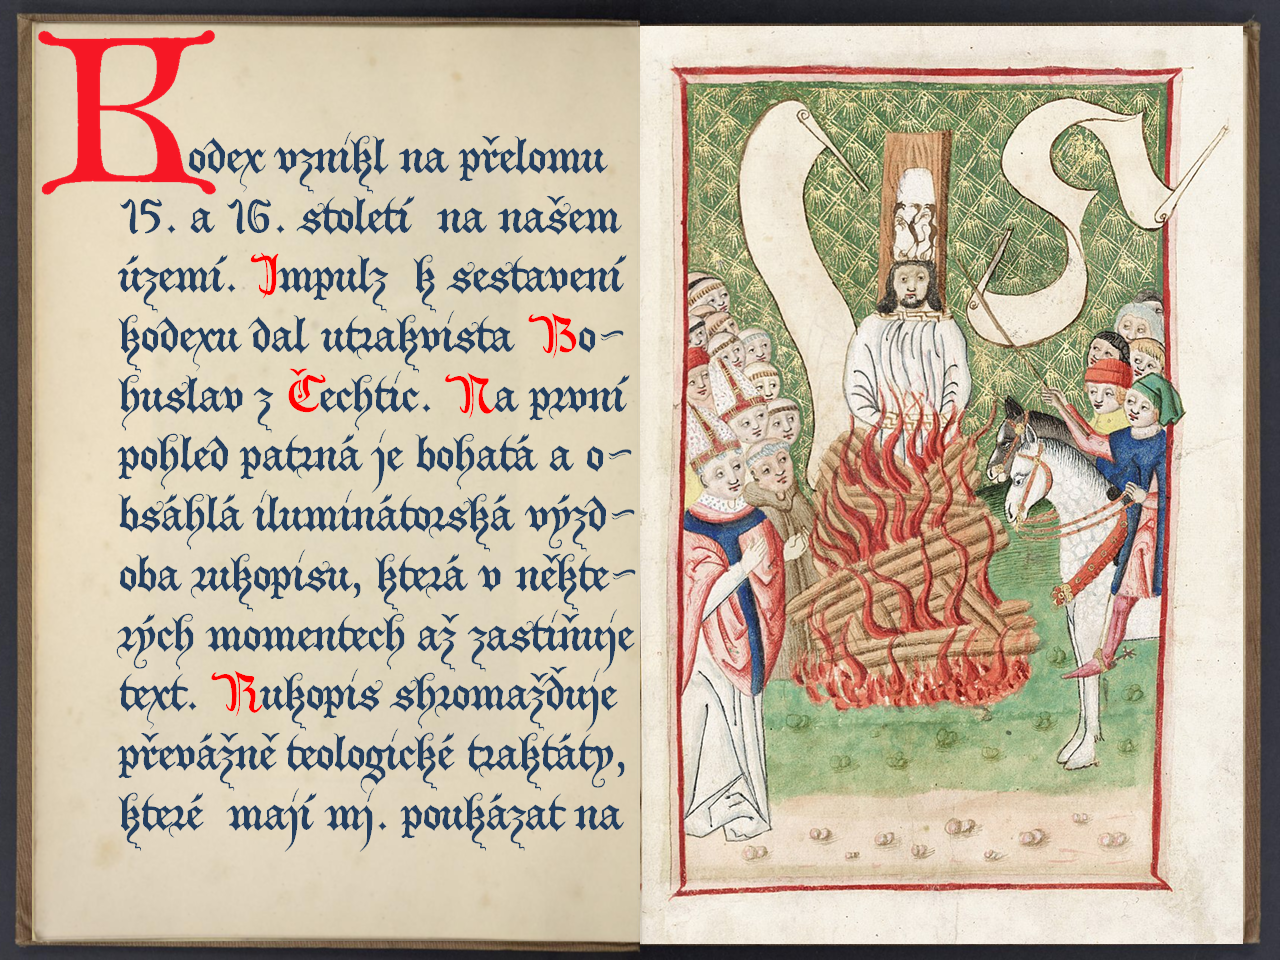 Kodex vznikl na přelomu
15. a 16. století na našem
území. Impulz k sestavení
kodexu dal utrakvista Bo-
huslav z Čechtic. Na první
pohled patrná je bohatá a o-
bsáhlá iluminátorská výzd-
oba rukopisu, která v někte-
rých momentech až zastiňuje
text. Rukopis shromažďuje
převážně teologické traktáty,
které mají mj. poukázat na